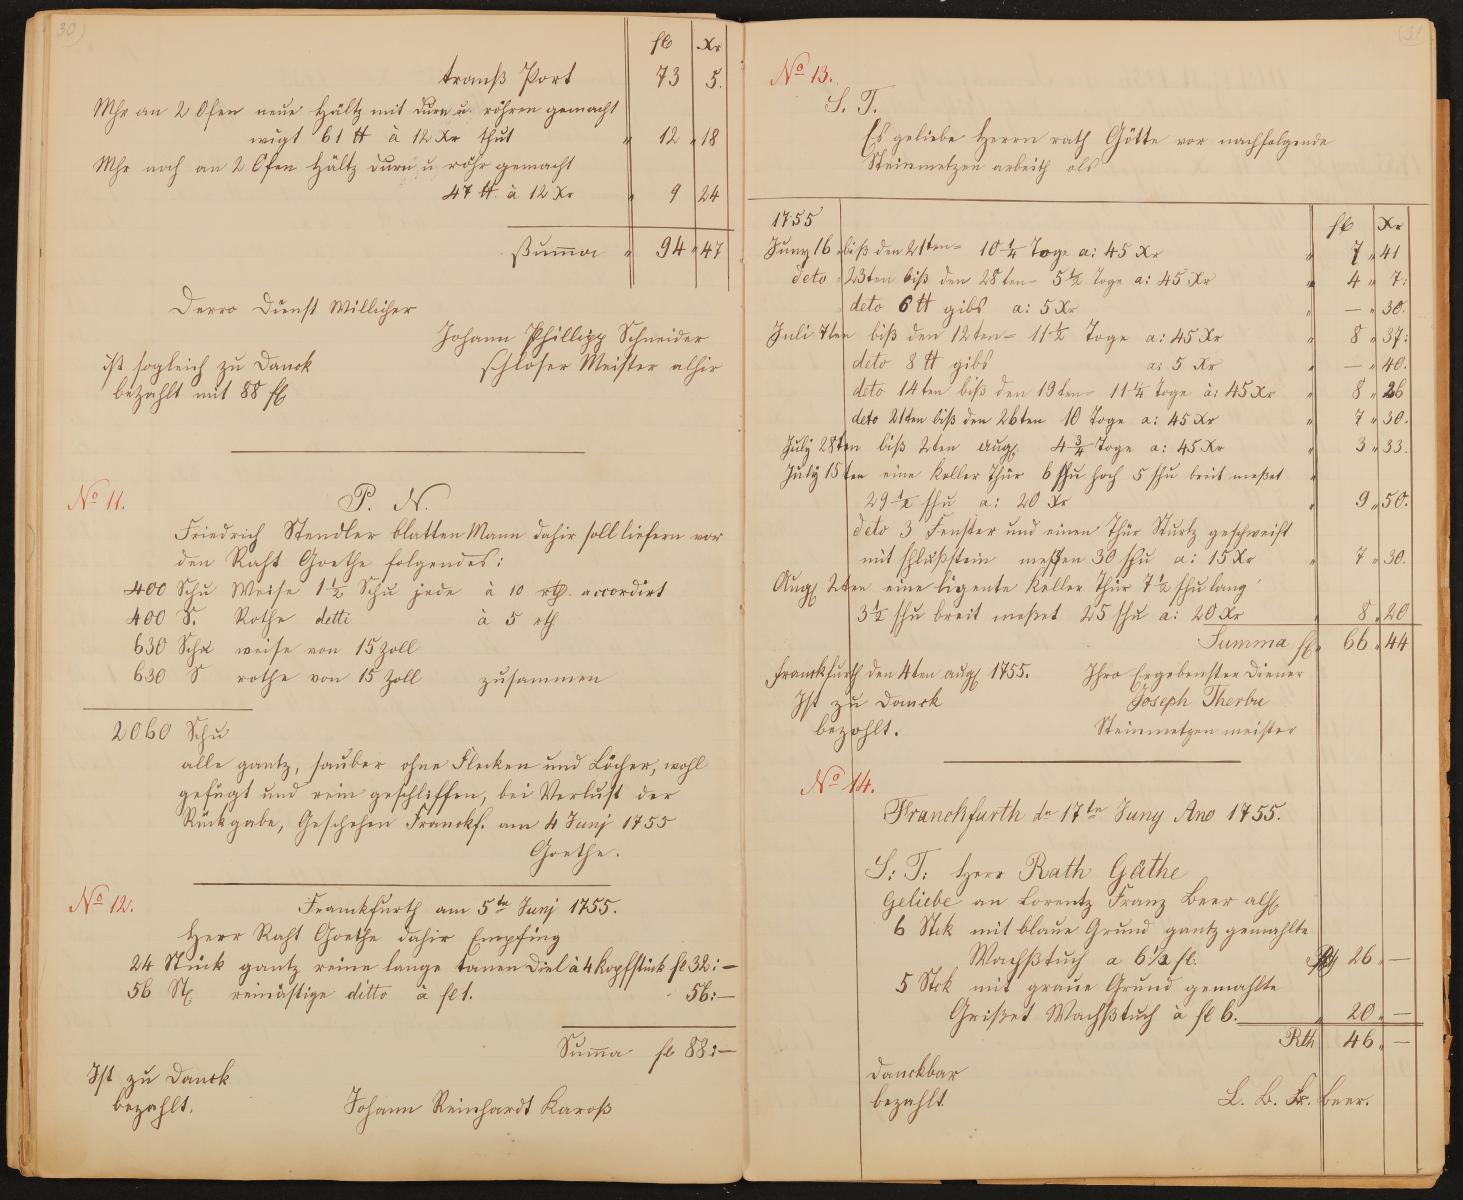 30)
fl Xr
tranß Port 73 5.
Mhr an 2 Ofen neue Hältz mit durn u. röhren gemacht
wigt 61 ℔ à 12 Xr thut " 12 " 18
Mhr noch an 2 Ofen Hältz durn u röhr gemacht
47 ℔. à 12 Xr " 9 24
Sum̅a " 94 " 47
Derro Dienst Williger
Johann Phillipp Schneider
schloser Meister alhir
ist sogleich zu Danck
bezahlt mit 88 fl
No 11. P. N.
Friedrich Stendler blatten Mann dahir soll liefern vor
den Raht Goethe folgendes:
400 Schu Weise 1½ Schu jede à 10 rth. accordirt
400 S. Rothe detti à 5 rth
630 Schu weise von 15 Zoll
630 S rothe von 15 Zoll zusammen
2060 Schu
alle gantz, sauber ohne Flecken und Löcher, wohl
gefügt und rein geschliffen, bei Verlust der
Rückgabe, Geschehen Franckf. am 4 Junj 1755
Goethe.
No 12. Franckfurth am 5tn Junj 1755.
Herr Raht Goethe dahir Empfing
24 Stück gantz reine lange tanen Diel à 4 Kopfstück fl 32:—
56 St reinästige ditto à fl 1. 56:—
Sum̅a fl 88:—
Ist zu Danck
bezahlt.
Johann Reinhardt Karoß
31
No 13.
S. T.
Es geliebe Herrn rath Götte vor nachfolgende
Steinmetzen arbeith als
1755 fl Xr
Juny 16 biß den 21ten 10¼ Tage a: 45 Xr " 7 " 41
deto 23ten biß den 28ten 5½ Tage a: 45 Xr " 4 " 7:
deto 6 ℔ gibs a: 5 Xr — " 30.
Juli 7ten biß den 12ten 11½ Tage a: 45 Xr " 8 " 37:
deto 8 ℔ gibs a: 5 Xr — " 40.
deto 14ten biß den 19ten 11¼ Tage à: 45 Xr " 8 " 26
deto 21ten biß den 26ten 10 Tage a: 45 Xr " 7 " 30.
July 28ten biß 2ten aug. 4¾ Tage a: 45 Xr 3 " 33.
July 15ten eine Keller Thür 6 schu hoch 5 schu breit meßet
29½ schu a: 20 Xr 9 " 50.
deto 3 Fenster und einen Thür Sturtz geschweift
mit schlußstein meßen 30 schu a: 15 Xr " 7 " 30.
Aug 2ten eine ligente Keller Thür 7½ schu lang
3½ schu breit meßet 25 schu a: 20 Xr " 8 " 20
Summa fl " 66 " 44
franckfurth den 4ten aug 1755. Ihro Ergebenster Diener
Ist zu Danck Joseph Therbu
bezahlt. Steinmetzen meister
No 14.
Franckfurth dn 17tn Juny Ano 1755.
S: T: Herr Rath Göthe
Geliebe an Lorentz Franz Beer alh
6 Stck mit blaue Grund gantz gemahlte
Wachßtuch a 6½ fl. 26 " —
5 Stck mit graue Grund gemahlte
Grißet Wachßtuch à fl 6. " 20 " —
Rth 46 " —
Danckbar
bezahlt L. B. Fr. Beer.